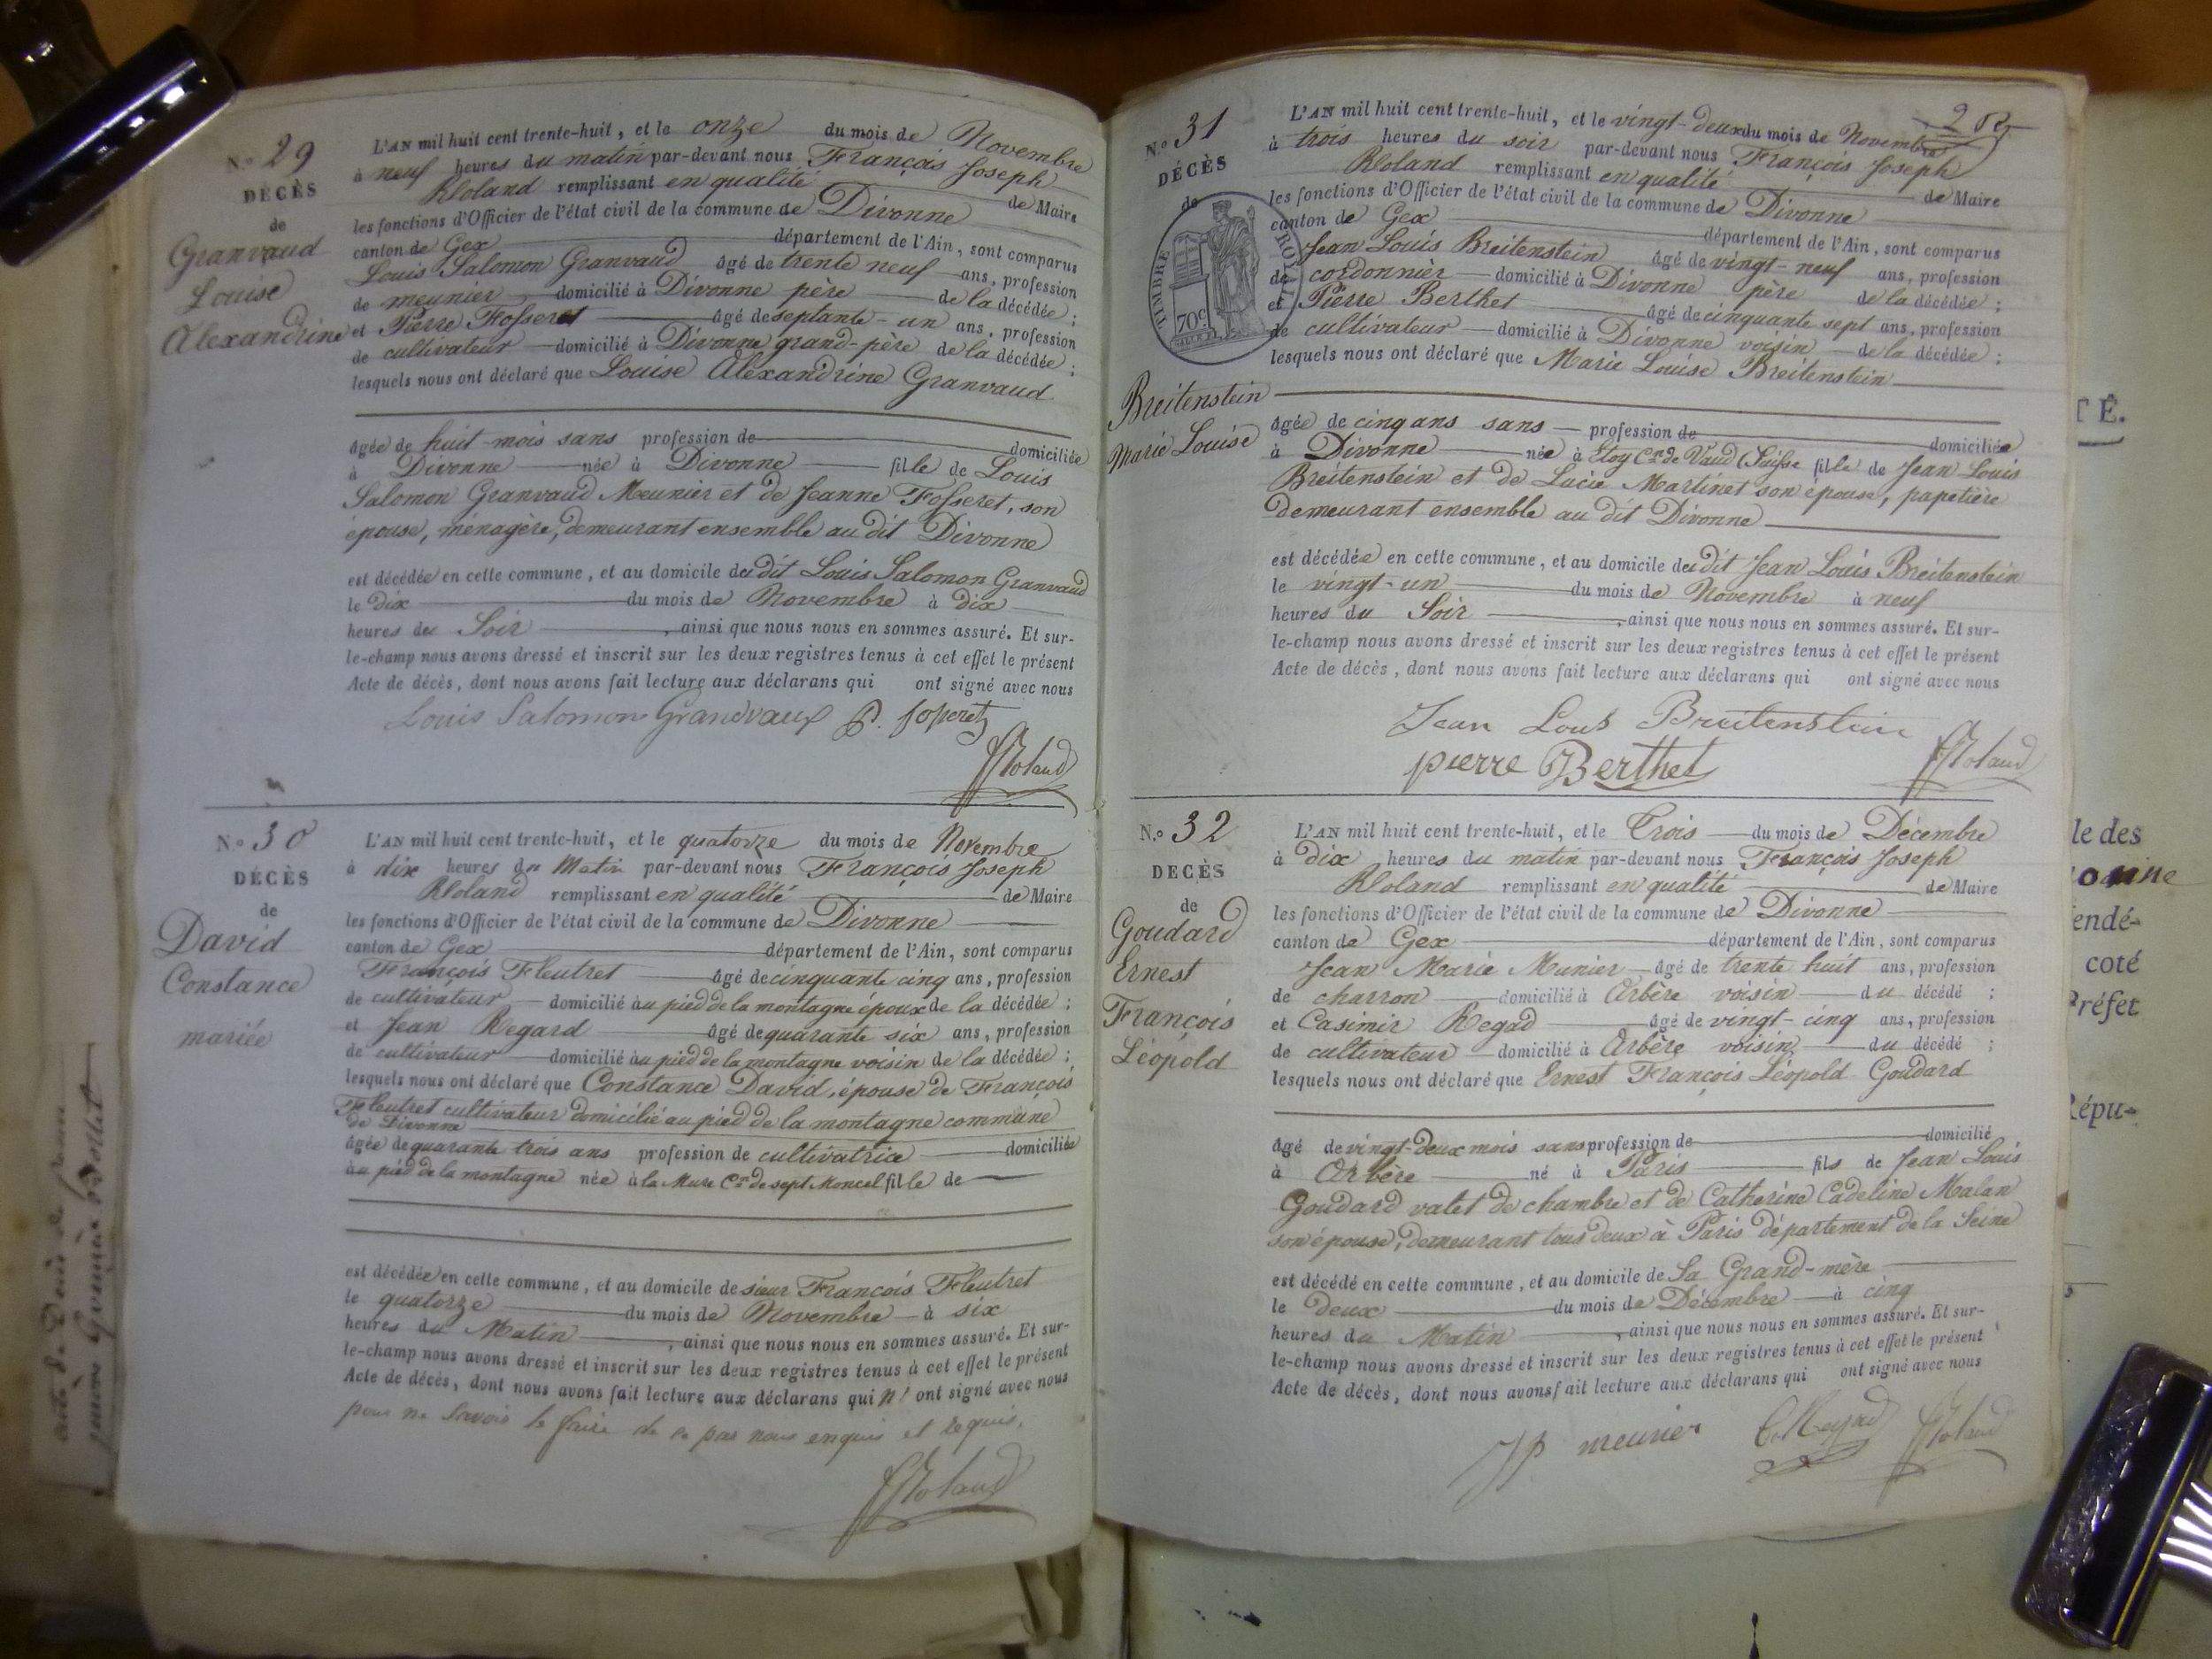 N.o 29
DÉCÈS
de
Granvaud
Louise
Alexandrine
L'AN mil huit cent trente-huit, et le onze du mois de Novembre
à neuf heures du matin par-devant nous François Joseph
Roland remplissant en qualité de Maire
les fonctions d'Officier de l'état civil de la commune de Divonne
canton de Gex département de l'Ain, sont comparus
Louis Salomon Granvaud âgé de trente neuf ans, profession
de meunier domicilié à Divonne père de la décédée ;
et Pierre Fosseret âgé de septante-un ans, profession
de cultivateur domicilié à Divonne grand-père de la décédée ;
lesquels nous ont déclaré que Louise Alexandrine Granvaud
âgée de huit mois sans profession de domiciliée
à Divonne née à Divonne fille de Louis
Salomon Granvaud Meunier et de Jeanne Fosseret, son
épouse, ménagère, demeurant ensemble au dit Divonne
est décédée en cette commune, et au domicile du dit Louis Salomon Granvaud
le dix du mois de Novembre à dix
heures du Soir , ainsi que nous nous en sommes assuré. Et sur-
le-champ nous avons dressé et inscrit sur les deux registres tenus à cet effet le présent
Acte de décès, dont nous avons fait lecture aux déclarans qui ont signé avec nous
Louis Salomon Grandvaux P. fosseret
Roland
N.o 30
DÉCÈS
de
David
Constance
mariée
L'AN mil huit cent trente-huit, et le quatorze du mois de Novembre
à dix heures du Matin par-devant nous François Joseph
Roland remplissant en qualité de Maire
les fonctions d'Officier de l'état civil de la commune de Divonne
canton de Gex département de l'Ain, sont comparus
François Fleutret âgé de cinquante cinq ans, profession
de cultivateur domicilié au pied de la montagne époux de la décédée ;
et Jean Regard âgé de quarante six ans, profession
de cultivateur domicilié au pied de la montagne voisin de la décédée ;
lesquels nous ont déclaré que Constance David, épouse de François
Fleutret cultivateur domicilié au pied de la montagne commune
de Divonne
âgée de quarante trois ans profession de cultivatrice domiciliée
au pied de la montagne née à la Mure C.on de sept Moncel fille de
est décédée en cette commune, et au domicile de sieur François Fleutret
le quatorze du mois de Novembre à six
heures du Matin , ainsi que nous nous en sommes assuré. Et sur-
le-champ nous avons dressé et inscrit sur les deux registres tenus à cet effet le présent
Acte de décès, dont nous avons fait lecture aux déclarans qui n' ont signé avec nous
pour ne savoir le faire de ce par nous enquis et requis.
Roland
N.o 31
DÉCÈS
de
TIMBRE ROYAL
70c
Breitenstein
Marie Louise
L'AN mil huit cent trente-huit, et le vingt-deux du mois de Novembre
à trois heures du soir par-devant nous François Joseph
Roland remplissant en qualité de Maire
les fonctions d'Officier de l'état civil de la commune de Divonne
canton de Gex département de l'Ain, sont comparus
Jean Louis Breitenstein âgé de vingt-neuf ans, profession
de cordonnier domicilié à Divonne père de la décédée ;
et Pierre Berthet âgé de cinquante sept ans, profession
de cultivateur domicilié à Divonne voisin de la décédée ;
lesquels nous ont déclaré que Marie Louise Breitenstein
âgée de cinq ans sans profession de domiciliée
à Divonne née à Eloy C.on de Vaud (Suisse fille de Jean Louis
Breitenstein et de Lucie Martinet son épouse, papetière
demeurant ensemble au dit Divonne
est décédée en cette commune, et au domicile du dit Jean Louis Breitenstein
le vingt-un du mois de Novembre à neuf
heures du Soir , ainsi que nous nous en sommes assuré. Et sur-
le-champ nous avons dressé et inscrit sur les deux registres tenus à cet effet le présent
Acte de décès, dont nous avons fait lecture aux déclarans qui ont signé avec nous
Jean Louis Breitenstein
pierre Berthet Roland
N.o 32
DECÈS
de
Goudard
Ernest
François
Léopold
L'AN mil huit cent trente-huit, et le Trois du mois de Décembre
à dix heures du matin par-devant nous François Joseph
Roland remplissant en qualité de Maire
les fonctions d'Officier de l'état civil de la commune de Divonne
canton de Gex département de l'Ain, sont comparus
Jean Marie Munier âgé de trente huit ans, profession
de charron domicilié à Arbère voisin du décédé ;
et Casimir Regad âgé de vingt-cinq ans, profession
de cultivateur domicilié à Arbère voisin du décédé ;
lesquels nous ont déclaré que Ernest François Léopold Goudard
âgé de vingt-deux mois sans profession de domicilié
à Arbère né à Paris fils de Jean Louis
Goudard valet de chambre et de Catherine Cadeline Malan
son épouse, demeurant tous deux à Paris département de la Seine
est décédé en cette commune, et au domicile de Sa Grand-mère
le deux du mois de Décembre à cinq
heures du Matin , ainsi que nous nous en sommes assuré. Et sur-
le-champ nous avons dressé et inscrit sur les deux registres tenus à cet effet le présent
Acte de décès, dont nous avons fait lecture aux déclarans qui ont signé avec nous
meunier C. Regad Roland
TÉ.
le des
endé-
coté
Préfet
Répu-